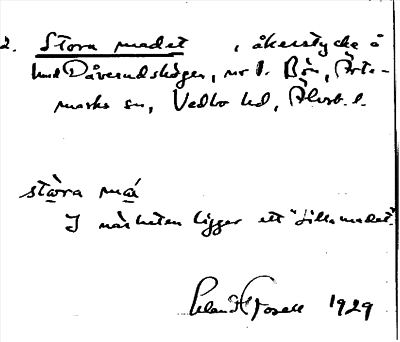 2. Stora madet, åkerstycke å
hmd Dåverudshögen, nr 1. Bön, Årte-
marks sn, Vedbo hd, Älvsb. l.
stòra má
I närheten ligger ett "Lillemadet".
1929